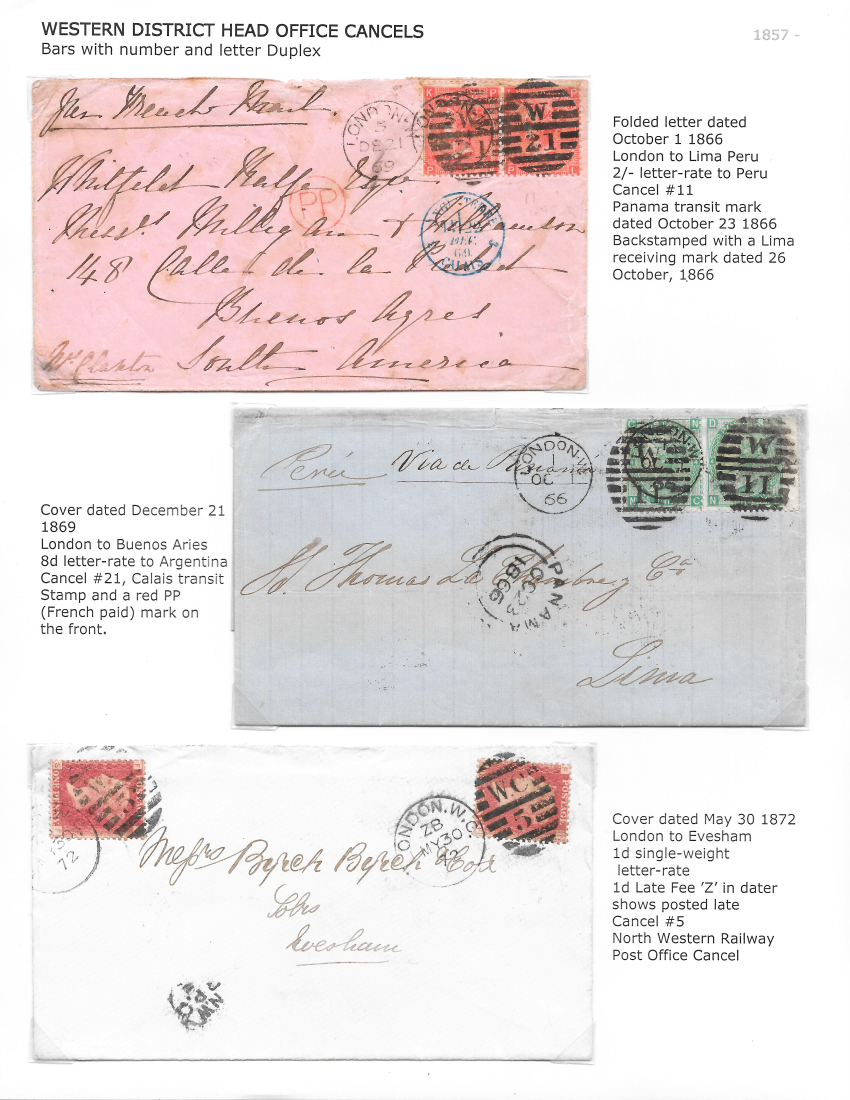 WESTERN DISTRICT HEAD OFFICE CANCELS
1857 -
Bars with number and letter Duplex
Per French Mail.
LONDON-W
3
DE 21
69
W
21
K P
P I
PP
CALAIS
Messrs Milligan &
148 Calle de la
Buenos Ayres
South America
Folded letter dated
October 1 1866
London to Lima Peru
2/- letter-rate to Peru
Cancel #11
Panama transit mark
dated October 23 1866
Backstamped with a Lima
receiving mark dated 26
October, 1866
Cover dated December 21
1869
London to Buenos Aries
8d letter-rate to Argentina
Cancel #21, Calais transit
Stamp and a red PP
(French paid) mark on
the front.
Via de Panamá
LONDON-W
1
OC 1
66
W
11
PANAMA
OC 23
1866
Lima
LONDON.W.C
ZB
MY 30
72
W.C
5
ONE PENNY
POSTAGE
Messrs Byrch Byrch & Cox
Evesham
Cover dated May 30 1872
London to Evesham
1d single-weight
letter-rate
1d Late Fee 'Z' in dater
shows posted late
Cancel #5
North Western Railway
Post Office Cancel